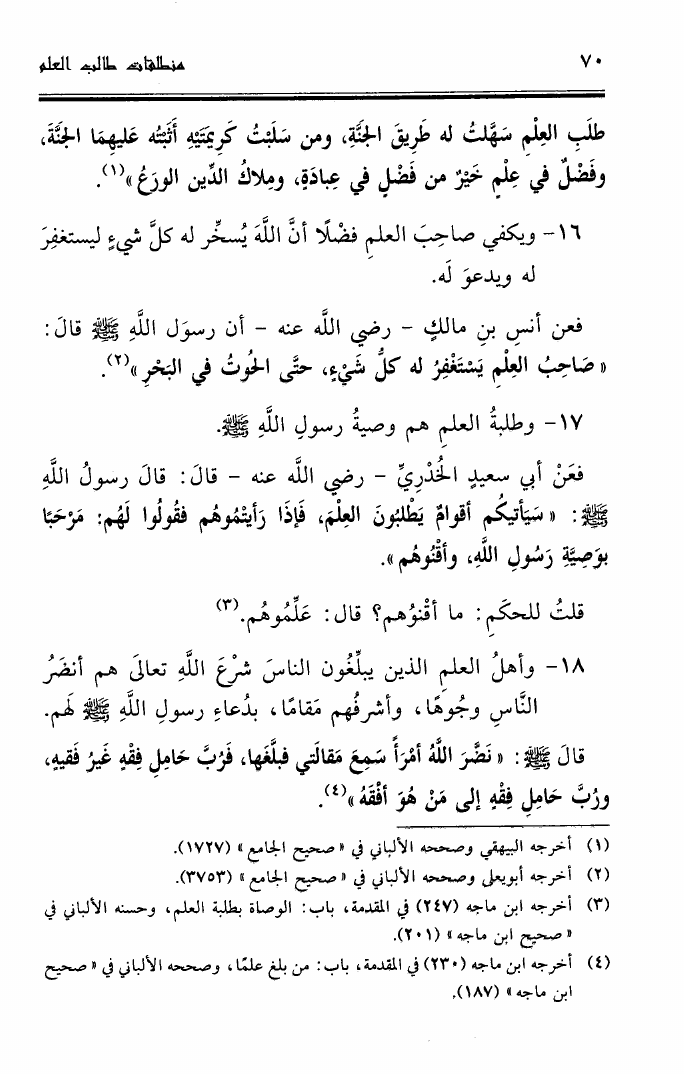 ٧٠
منطلقات طالب العلم
طلَبِ العِلْمِ سَهَّلتُ له طَرِيقَ الجَنَّةِ، ومن سَلَبْتُ كَرِيمَتَيْهِ أَثَبْتُه عَليهِمَا الجَنَّةَ،
وفَضْلٌ في عِلْمٍ خَيْرٌ من فَضْلٍ في عِبادَةٍ، ومِلاكُ الدِّينِ الورَعُ»(١).
١٦- ويكفي صاحِبَ العلمِ فضْلًا أنَّ اللَّهَ يُسخِّر له كلَّ شيءٍ ليستغفِرَ
له ويدعوَ لَه.
فعن أنسِ بنِ مالكٍ - رضي اللَّه عنه - أن رسوَل اللَّهِ ﷺ قالَ:
«صَاحِبُ العِلْمِ يَسْتَغْفِرُ له كلُّ شَيْءٍ، حتَّى الحُوتُ في البَحْرِ»(٢).
١٧- وطلبةُ العلمِ هم وصيةُ رسولِ اللَّهِ ﷺ.
فعَنْ أبي سعيدٍ الخُدْرِيِّ - رضي اللَّه عنه - قالَ: قالَ رسولُ اللَّهِ
ﷺ: «سَيَأتيكُم أقوامٌ يَطْلبُونَ العِلْمَ، فَإذَا رَأيتمُوهُم فقُولُوا لَهُم: مَرْحَبًا
بوَصِيَّةِ رَسُولِ اللَّهِ، وأقْنُوهُم».
قلتُ للحكَمِ: ما أقْنوُهم؟ قال: عَلِّمُوهُم.(٣)
١٨- وأهلُ العلمِ الذين يبلِّغُون الناسَ شرْعَ اللَّهِ تعالَى هم أنضَرُ
النَّاسِ وجُوهًا، وأشرفُهم مَقامًا، بدُعاءِ رسولِ اللَّهِ ﷺ لَهم.
قالَ ﷺ: «نَضَّرَ اللَّهُ أمْرَأً سَمِعَ مَقالَتي فبلَّغَها، فَرُبَّ حَامِلِ فِقْهٍ غَيرُ فَقيهٍ،
ورُبَّ حَامِلِ فِقْهٍ إلى مَنْ هُوَ أفْقَهُ»(٤).
(١) أخرجه البيهقي وصححه الألباني في «صحيح الجامع» (١٧٢٧).
(٢) أخرجه أبويعلى وصححه الألباني في «صحيح الجامع» (٣٧٥٣).
(٣) أخرجه ابن ماجه (٢٤٧) في المقدمة، باب: الوصاة بطلبة العلم، وحسنه الألباني في
«صحيح ابن ماجه» (٢٠١).
(٤) أخرجه ابن ماجه (٢٣٠) في المقدمة، باب: من بلغ علمًا، وصححه الألباني في «صحيح
ابن ماجه» (١٨٧).